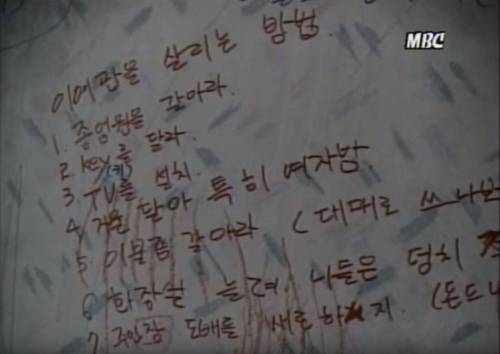 MBC
이여관을 살리는 방법.
1. 종업원을 갈아라.
2. key를 달라.
(키)
3. TV를 설치.
4. 거울 달아 특히 여자방.
5. 이불좀 갈아라 (대때로
6 화장실 늘려 니들은 덩치
7. 주인장 도배를 새로 하지. (돈드